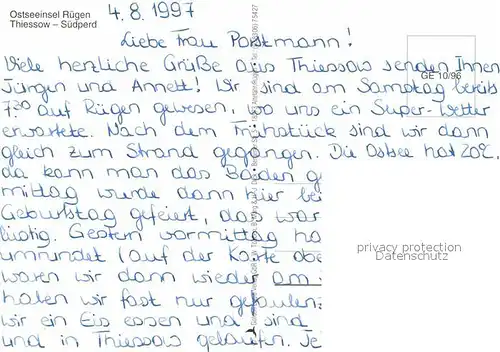 Ostseeinsel Rügen
Thiessow – Südperd
4.8.1997
Liebe Frau Porstmann!
GE 10/96
Viele herzliche Grüße aus Thiessow senden Ihnen
Jürgen und Annett! Wir sind am Samstag bereits
7.30 auf Rügen gewesen, wo uns ein Super-Wetter
erwartete. Nach dem Frühstück sind wir dann
gleich zum Strand gegangen. Die Ostsee hat 20°C,
da kann man das Baden g
mittag wurde dann hier bei
Geburtstag gefeiert, das war
lustig. Gestern vormittag ha
umrundet (auf der Karte obe
waren wir dann wieder am
haben wir fast nur gefaulen
wir ein Eis essen und sind
und in Thiessow gelaufen. Je
privacy protection
Datenschutz